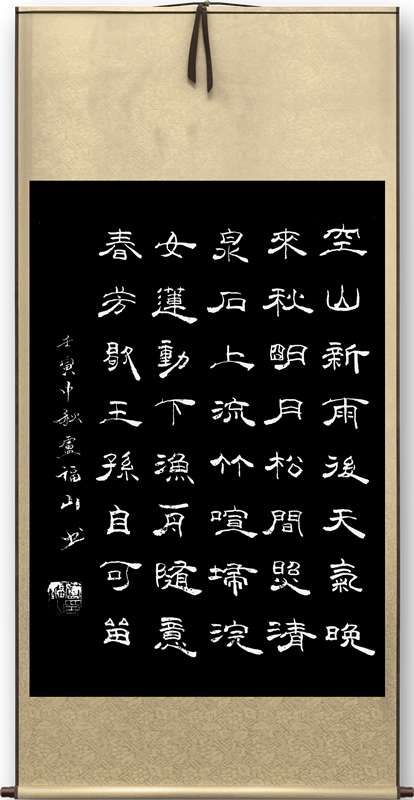 空山新雨後天氣晚
來秋明月松間照清
泉石上流竹喧歸浣
女蓮動下漁舟隨意
春芳歇王孫自可留
壬寅中秋盧福山书